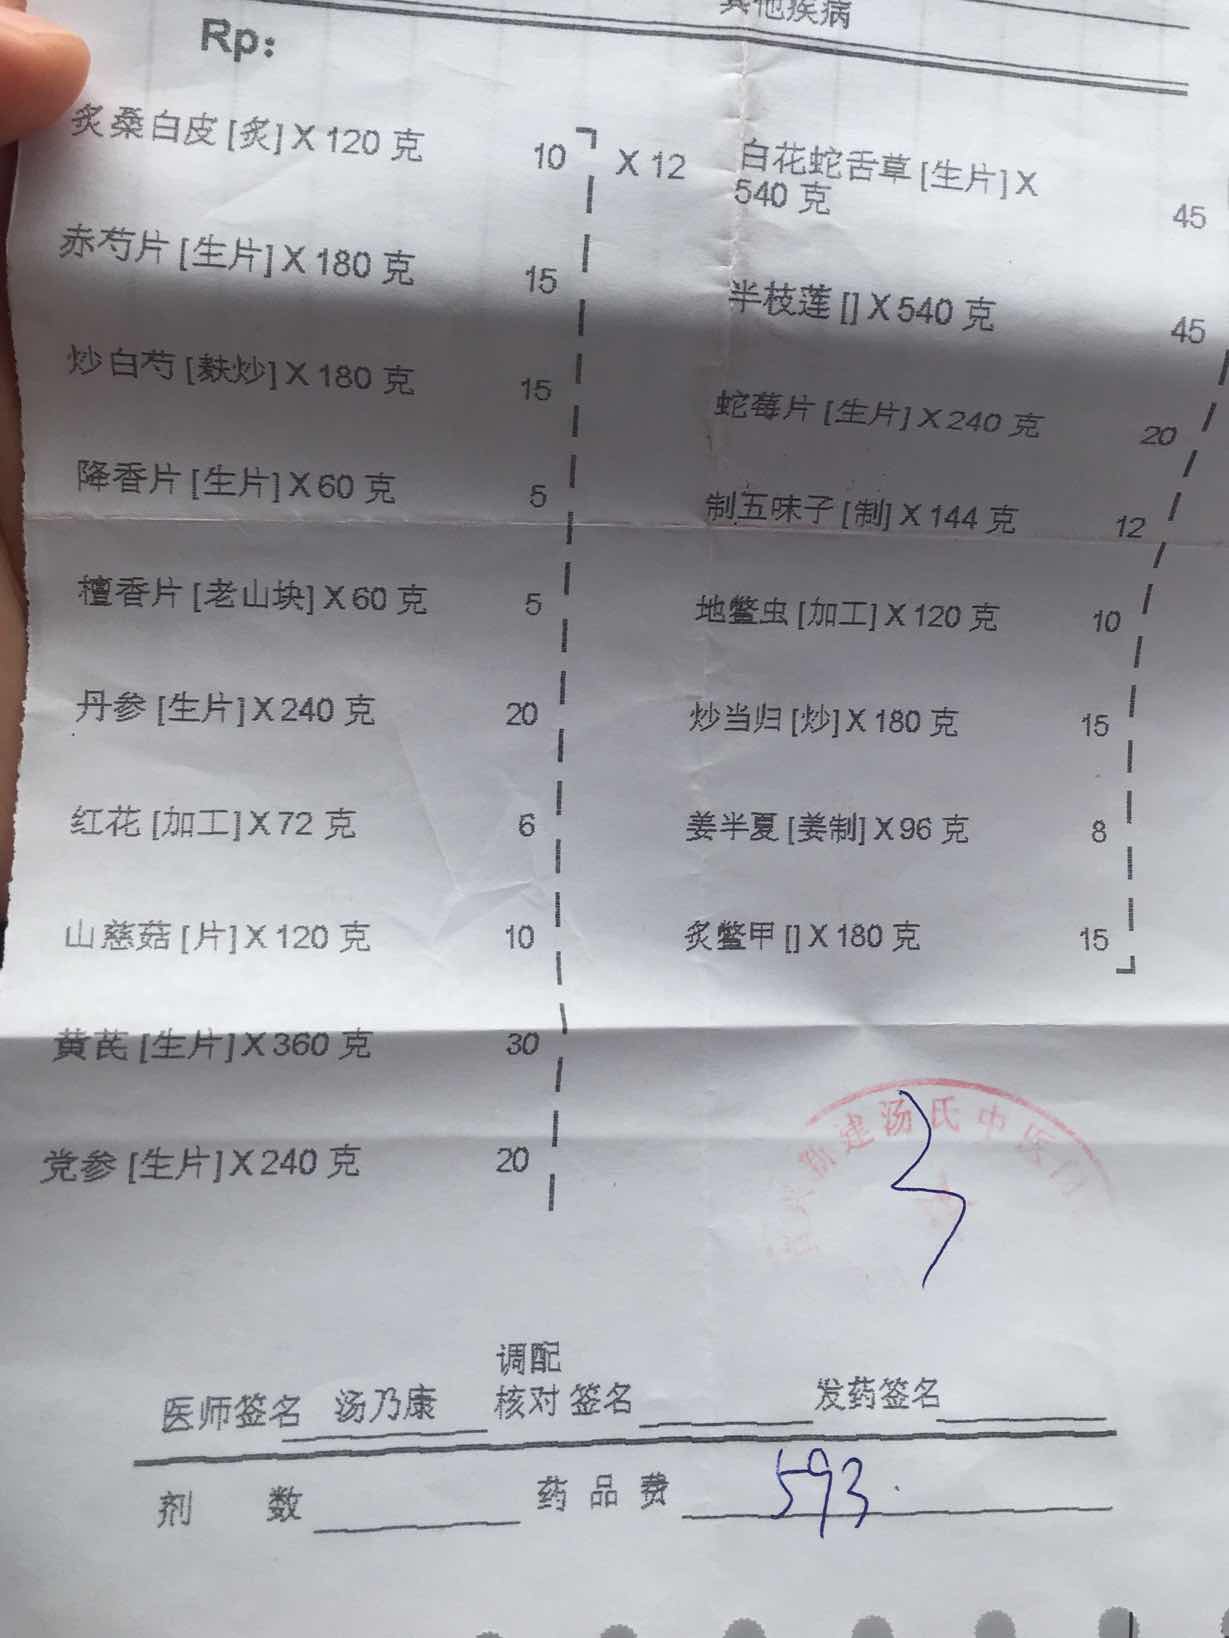 其他疾病
Rp:
炙桑白皮 [炙] X 120 克 10
赤芍片 [生片] X 180 克 15
炒白芍 [麸炒] X 180 克 15
降香片 [生片] X 60 克 5
檀香片 [老山块] X 60 克 5
丹参 [生片] X 240 克 20
红花 [加工] X 72 克 6
山慈菇 [片] X 120 克 10
黄芪 [生片] X 360 克 30
党参 [生片] X 240 克 20
X 12
白花蛇舌草 [生片] X
540 克 45
半枝莲 [] X 540 克 45
蛇莓片 [生片] X 240 克 20
制五味子 [制] X 144 克 12
地鳖虫 [加工] X 120 克 10
炒当归 [炒] X 180 克 15
姜半夏 [姜制] X 96 克 8
炙鳖甲 [] X 180 克 15
建汤氏中医门
医师签名 汤乃康 调配
核对 签名 发药签名
剂 数 药 品 费 593